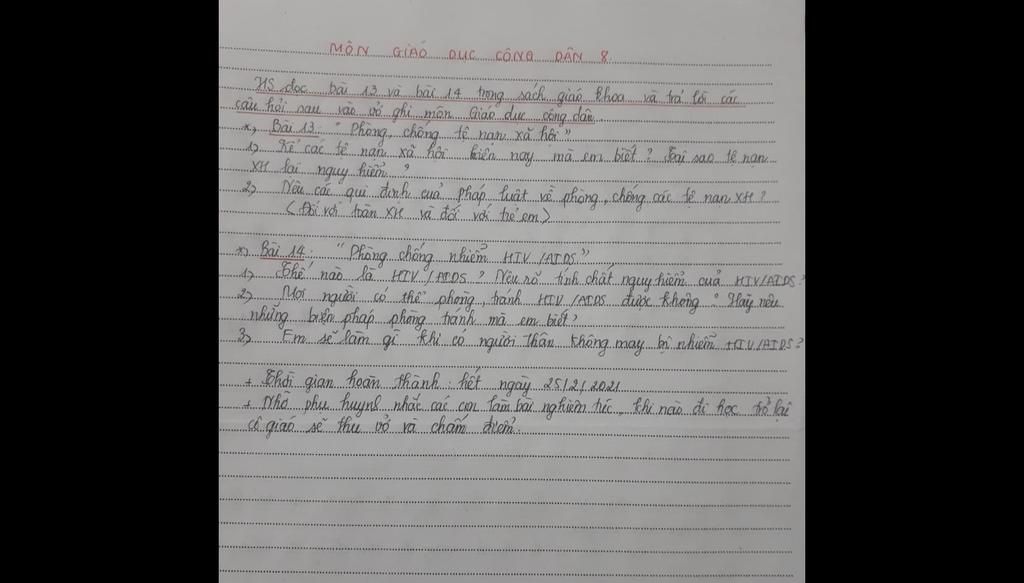 MÔN GIÁO DỤC CÔNG DÂN 8
HS đọc bài 13 và bài 14 trong sách giáo khoa và trả lời các
câu hỏi sau vào vở ghi môn Giáo dục công dân.
*, Bài 13: "Phòng, chống tệ nạn xã hội"
1, Kể các tệ nạn xã hội hiện nay mà em biết? Tại sao tệ nạn
XH lại nguy hiểm?
2, Nêu các qui định của pháp luật về phòng, chống các tệ nạn XH?
(Đối với toàn XH và đối với trẻ em)
*, Bài 14: "Phòng chống nhiễm HIV/AIDS"
1, Thế nào là HIV/AIDS? Nêu rõ tính chất nguy hiểm của HIV/AIDS?
2, Mọi người có thể phòng, tránh HIV/AIDS được không? Hãy nêu
những biện pháp phòng tránh mà em biết?
3, Em sẽ làm gì khi có người thân không may bị nhiễm HIV/AIDS?
+ Thời gian hoàn thành: hết ngày 25/2/2021
+ Nhờ phụ huynh nhắc các con làm bài nghiêm túc, khi nào đi học trở lại
cô giáo sẽ thu vở và chấm điểm.